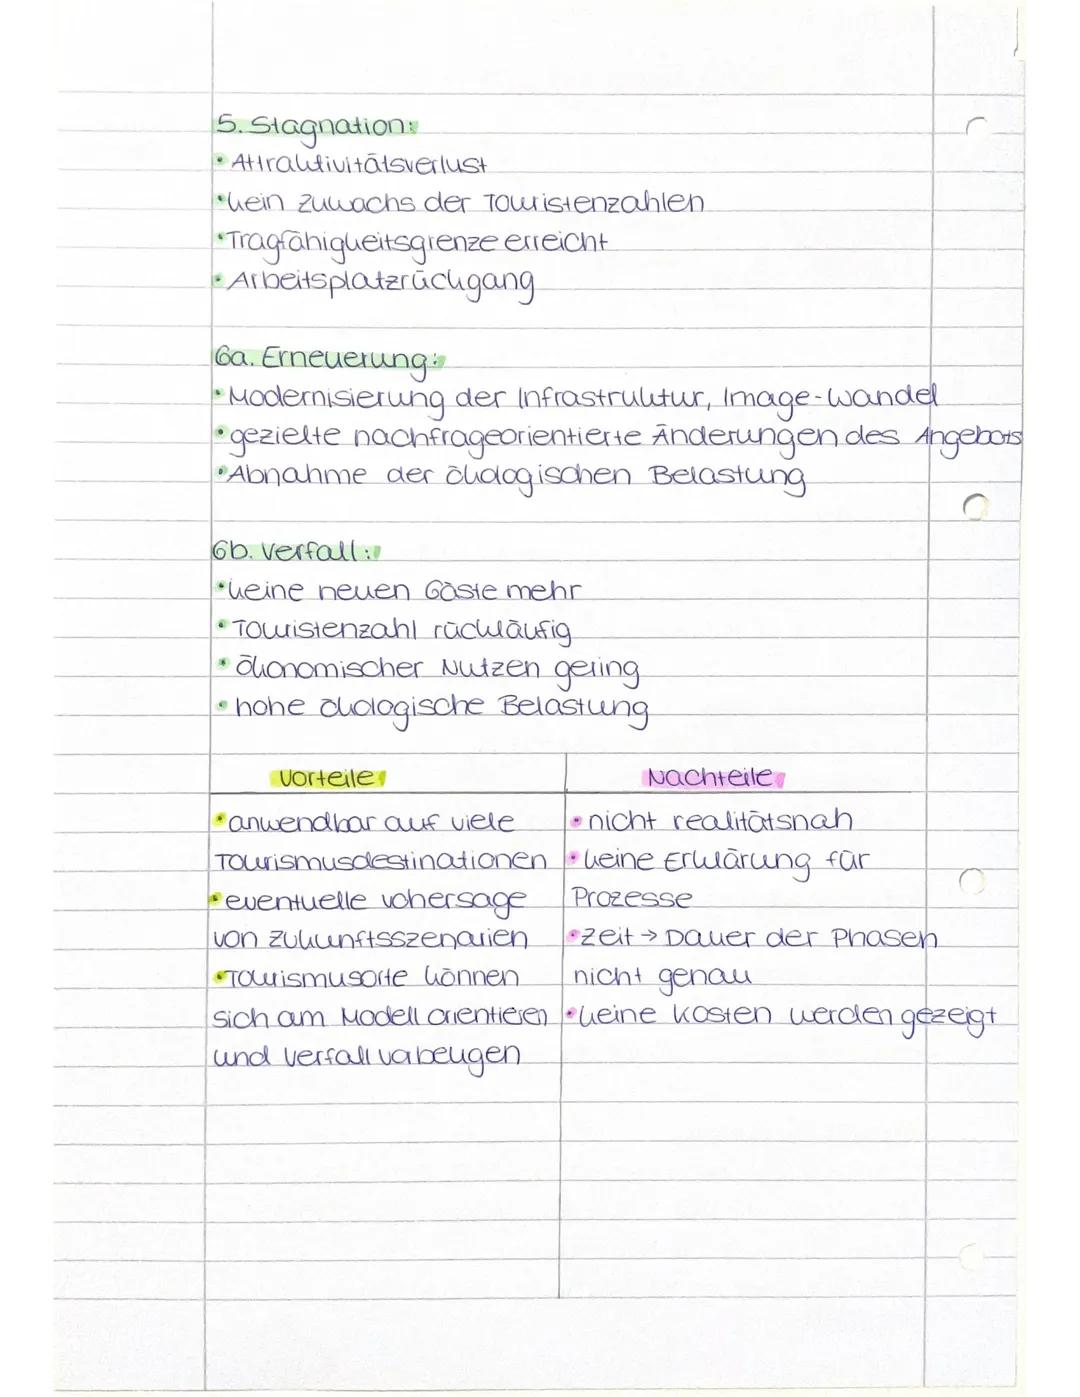 5. Stagnation:
• Attraktivitätsverlust
• kein Zuwachs der Touristenzahlen
• Tragfähigkeitsgrenze erreicht
• Arbeitsplatzrückgang
6a. Erneuerung:
• Modernisierung der Infrastruktur, Image-Wandel
• gezielte nachfrageorientierte Änderungen des Angebots
• Abnahme der ökologischen Belastung
6b. Verfall:
• keine neuen Gäste mehr
• Touristenzahl rückläufig
• ökonomischer Nutzen gering
• hohe ökologische Belastung
Vorteile
• anwendbar auf viele
Tourismusdestinationen
• eventuelle vohersage
von Zukunftsszenarien
• Tourismusorte können
sich am Modell orientieren
und Verfall vorbeugen
Nachteile
• nicht realitätsnah
• keine Erklärung für
Prozesse
• Zeit → Dauer der Phasen
nicht genau
• keine Kosten werden gezeigt